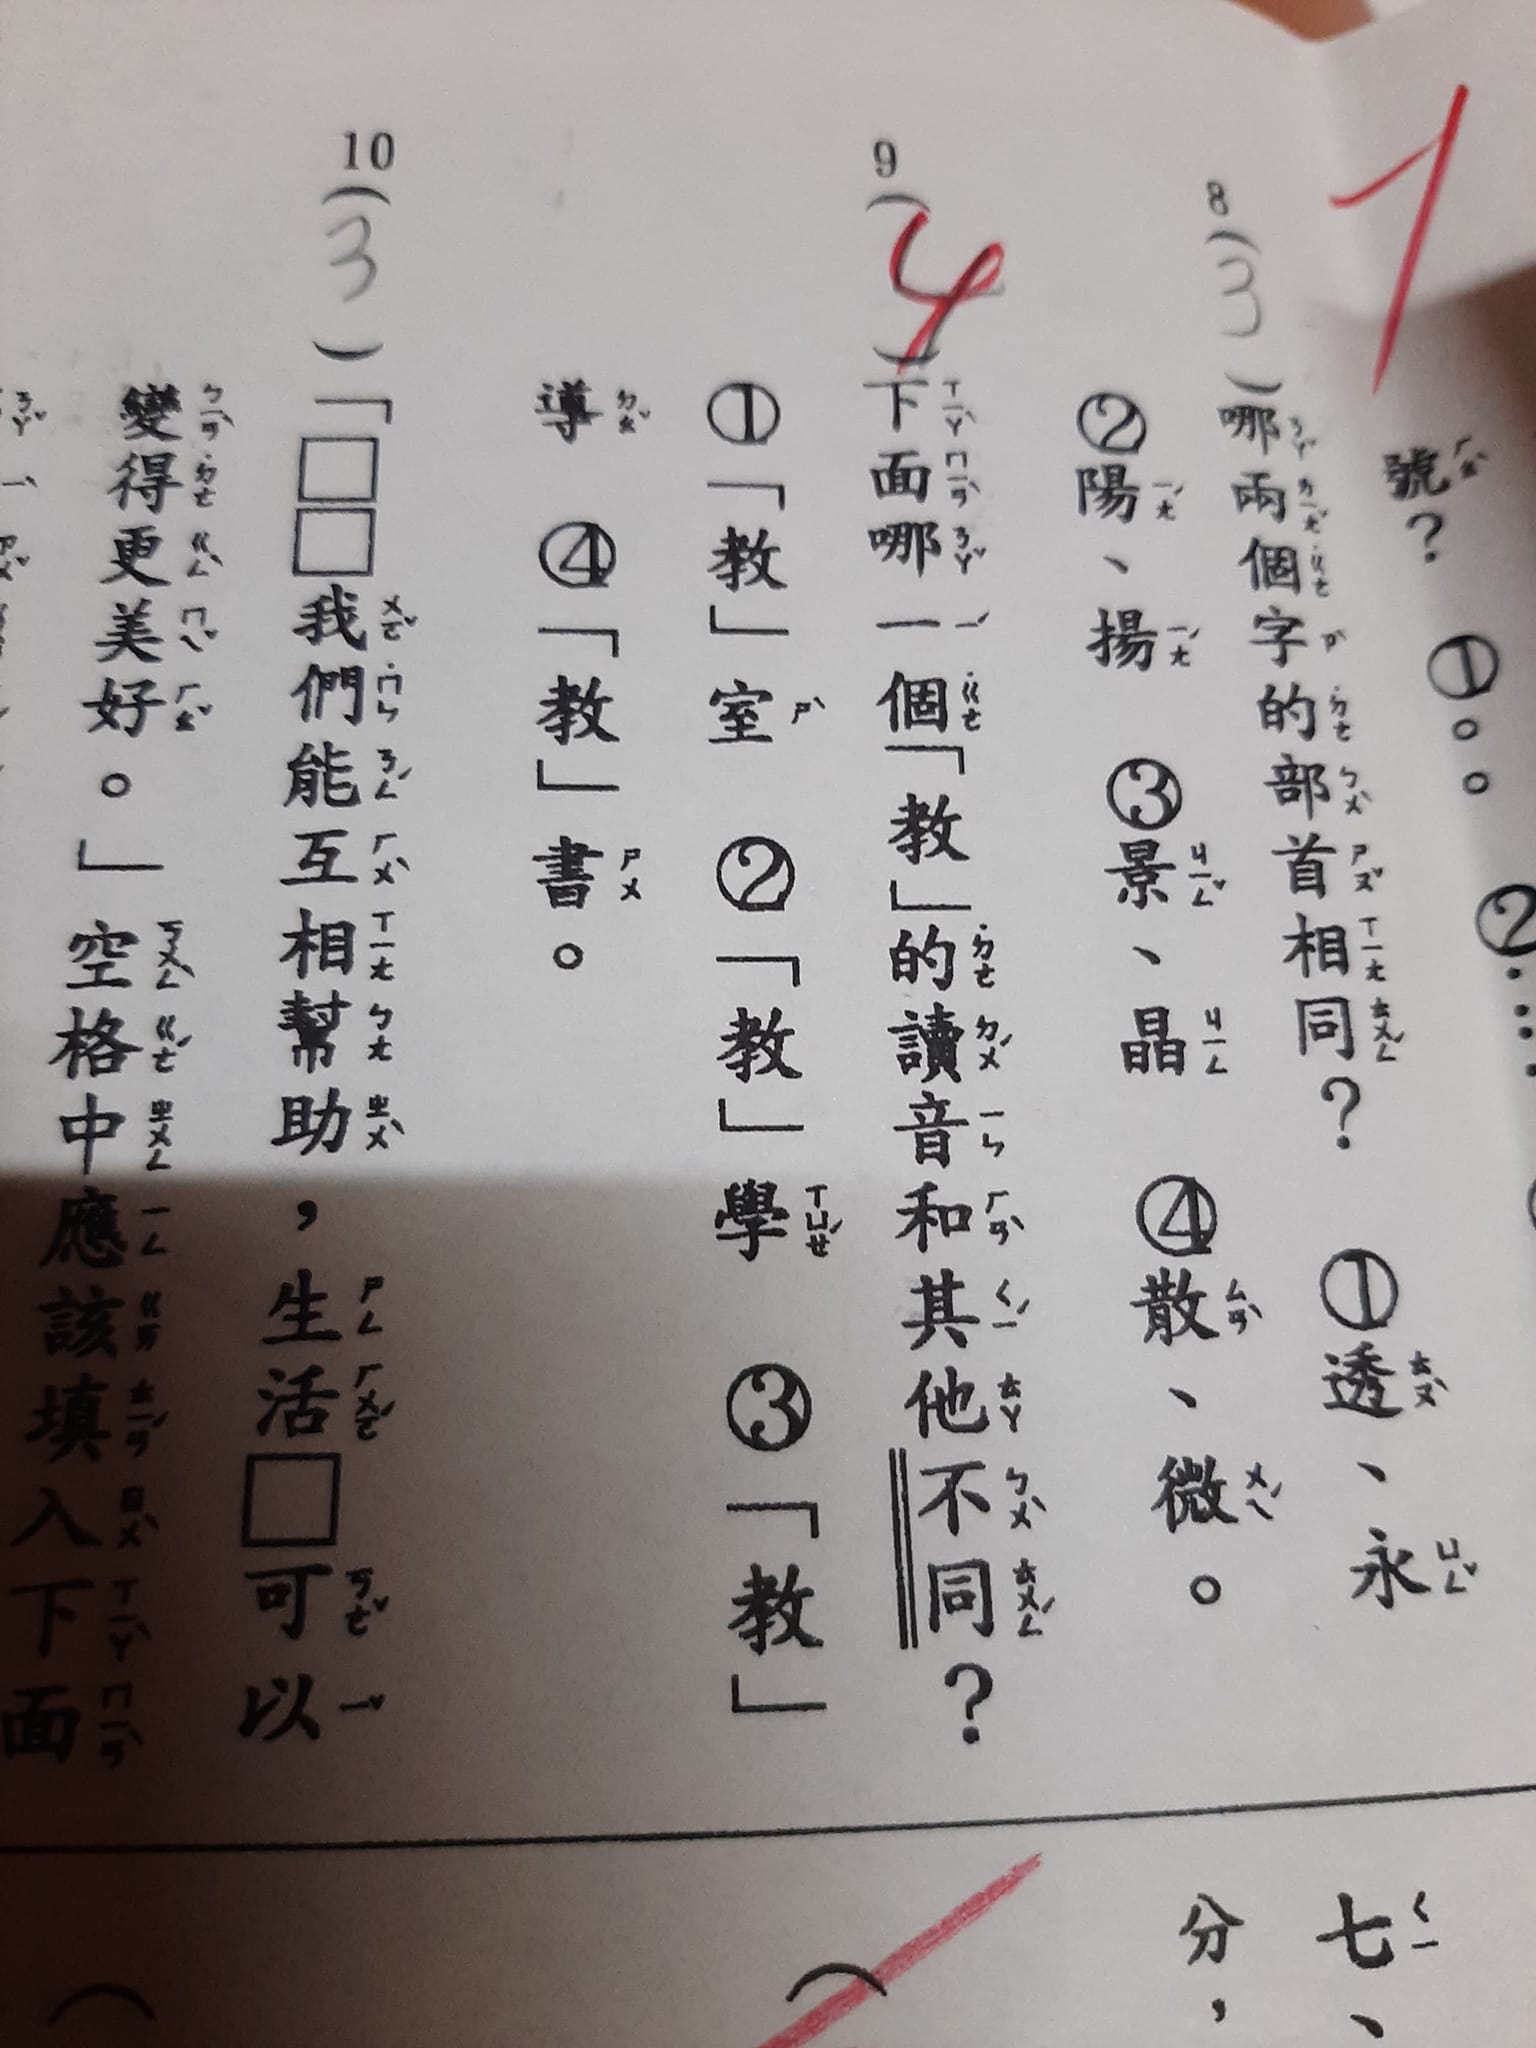 號？ ①。。 ②
8（3）哪兩個字的部首相同？ ①透、永
②陽、揚 ③景、晶 ④散、微。
9（4）下面哪一個「教」的讀音和其他不同？
①「教」室 ②「教」學 ③「教」
導 ④「教」書。
10（3）「□□我們能互相幫助，生活□可以
變得更美好。」空格中應該填入下面
七、
分，